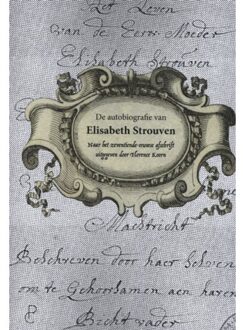 Het Leven
van de Eerw Moeder
Elisabeth Strouven
De autobiografie van
Elisabeth Strouven
Naar het zeventiende-eeuwse afschrift
uitgegeven door Florence Koorn
Maestricht
Beschreven door haer Selven
om te Gehoorsamen aen haren
Bicht vader